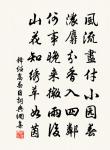 風流盡付小園春
濃麝分香入四鄰
何事晚來微雨後
山花如繡草如茵